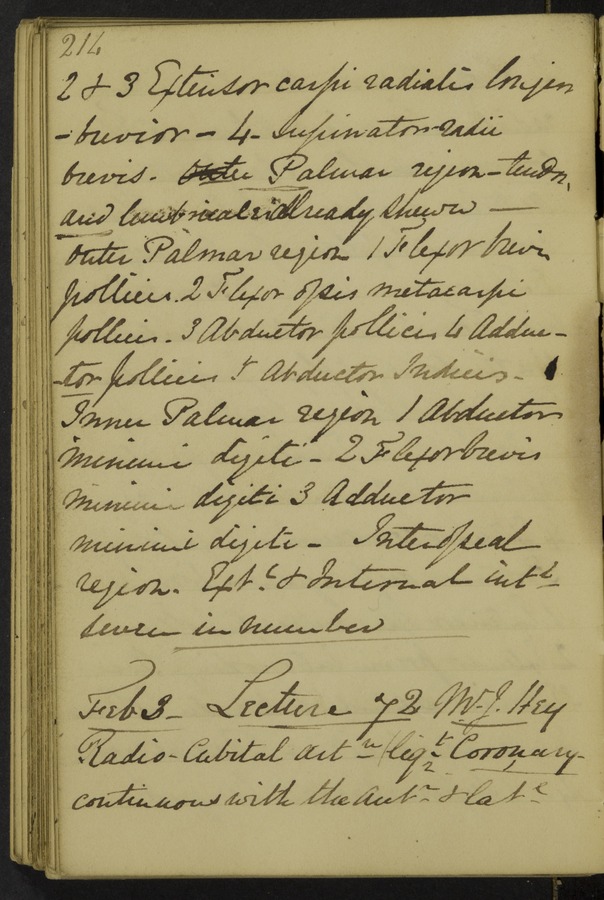 214
2 & 3 Extensor carpi radialis longior
- brevior - 4 - Supinator radii
brevis - Palmar region - tendn.
and lumbricales already shewn -
Outer Palmar region 1 Flexor brevis
pollicis. 2 Flexor opsis metacarpi
pollicis. 3 Abductor pollicis 4 Adduc-
-tor pollicis 5 Abductor Indicis -
Inner Palmar region 1 Abductor
minimi digiti - 2 Flexor brevis
minimi digiti 3 Adductor
minimi digiti - Interosseal
region. Extl & Internal intl
seven in number
Feb 3 - Lecture 72 Mr J. Hey
Radio-Cubital artn (ligt Coronary -
continuous with the antr & latl